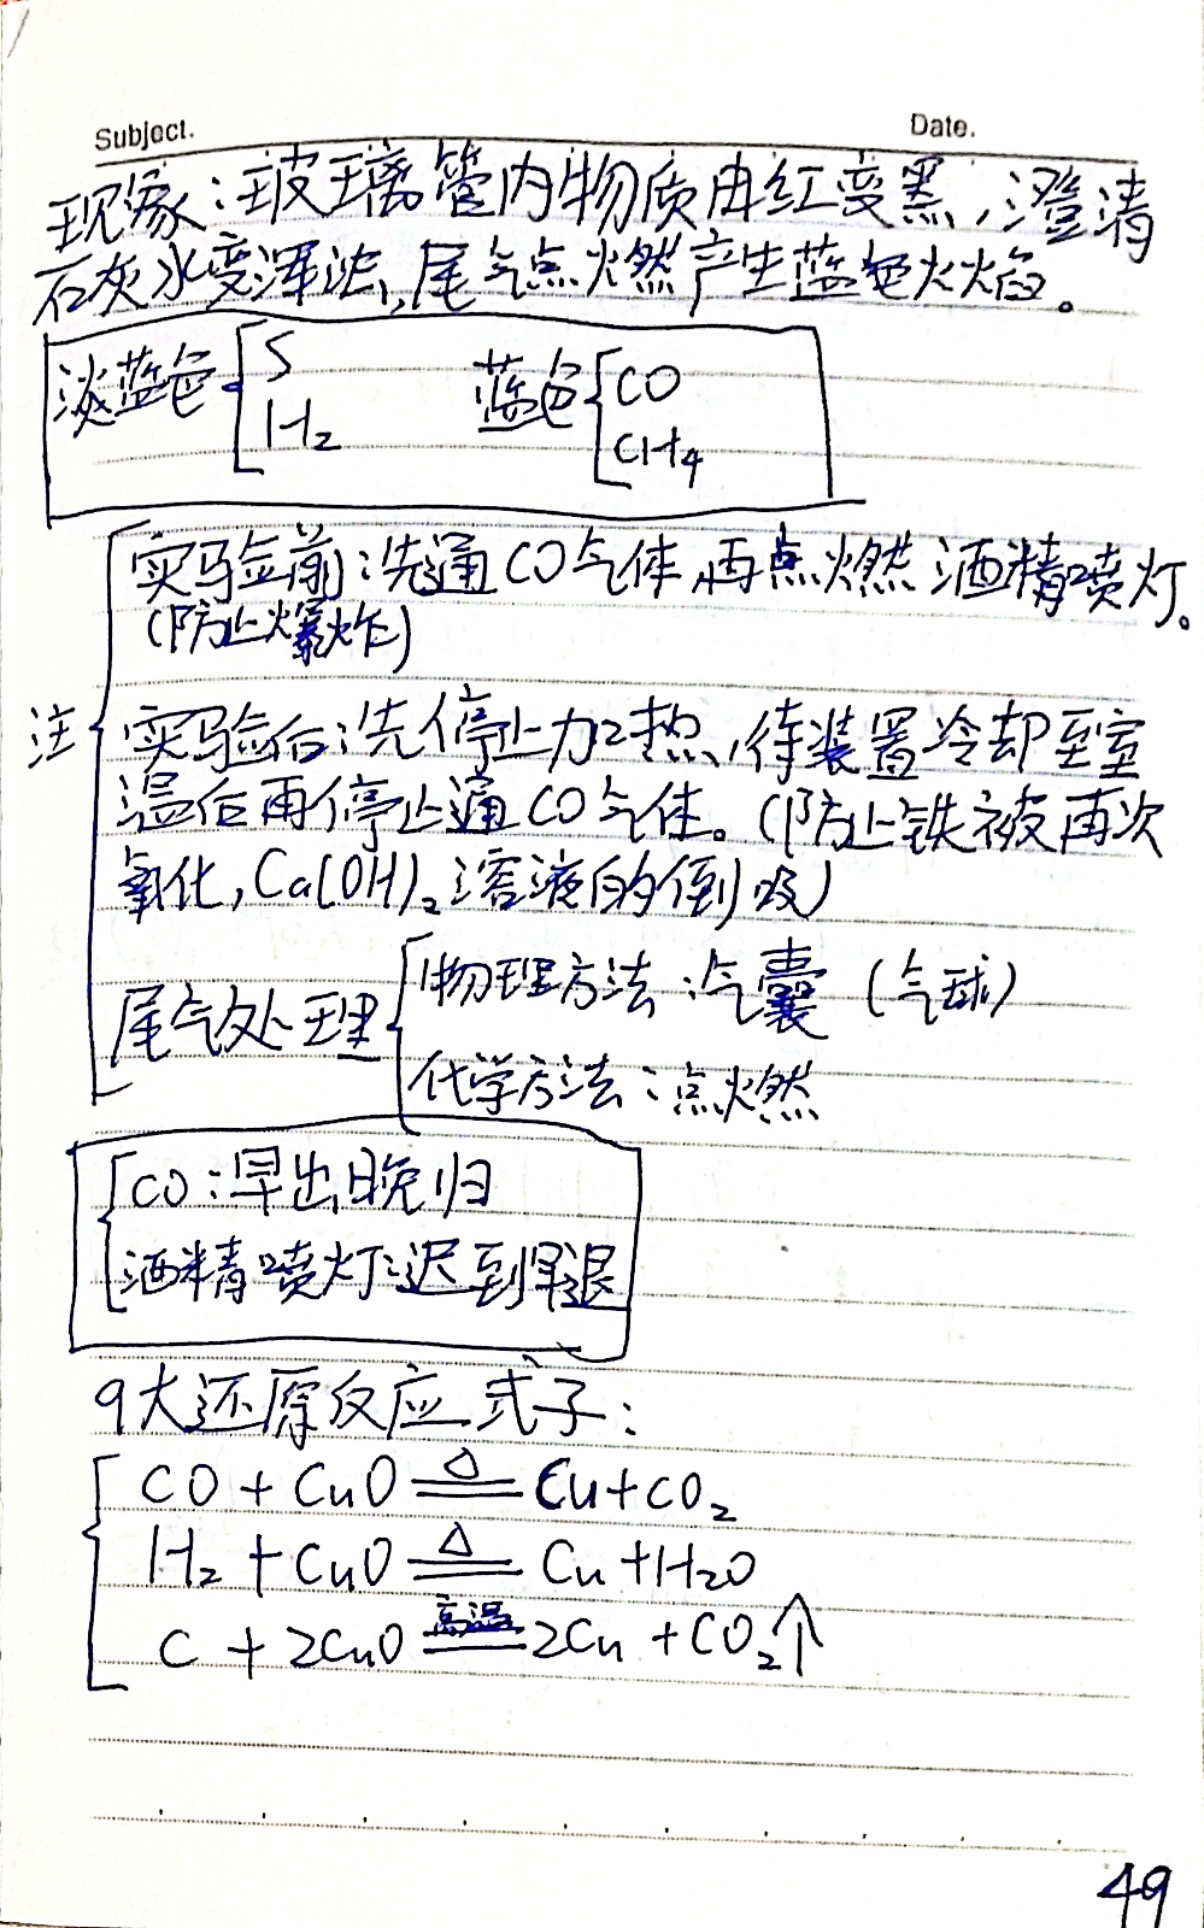 Subject.
Date.
现象：玻璃管内物质由红变黑，澄清
石灰水变浑浊，尾气点燃产生蓝色火焰。
淡蓝色 { S H₂ 蓝色 { CO CH₄
注
实验前：先通CO气体，再点燃酒精喷灯。
（防止爆炸）
实验后：先停止加热，待装置冷却至室
温后再停止通CO气体。（防止铁被再次
氧化，Ca(OH)₂溶液的倒吸）
尾气处理
物理方法：气囊（气球）
化学方法：点燃
CO：早出晚归
酒精喷灯：迟到早退
9大还原反应式子：
CO + CuO ≜ Cu + CO₂
H₂ + CuO ≜ Cu + H₂O
C + 2CuO 高温 2Cu + CO₂↑
49